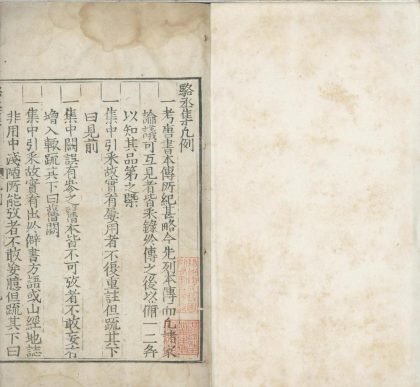 駱丞集凡例
一考唐書本傳所紀甚略今先列本傳而凡諸家
論議可互見者皆采錄於傳之後以備一二务
以知其品第之槩
一集中引采故實有屢用者不復重註但疏其下
曰見前
一集中闕誤有參之舊本皆不可攷者不敢妄有
增入輙疏其下曰舊闕
一集中引采故實有出於僻書方語或山經地誌
非用中淺陋所能攷者不敢妄臆但疏其下曰